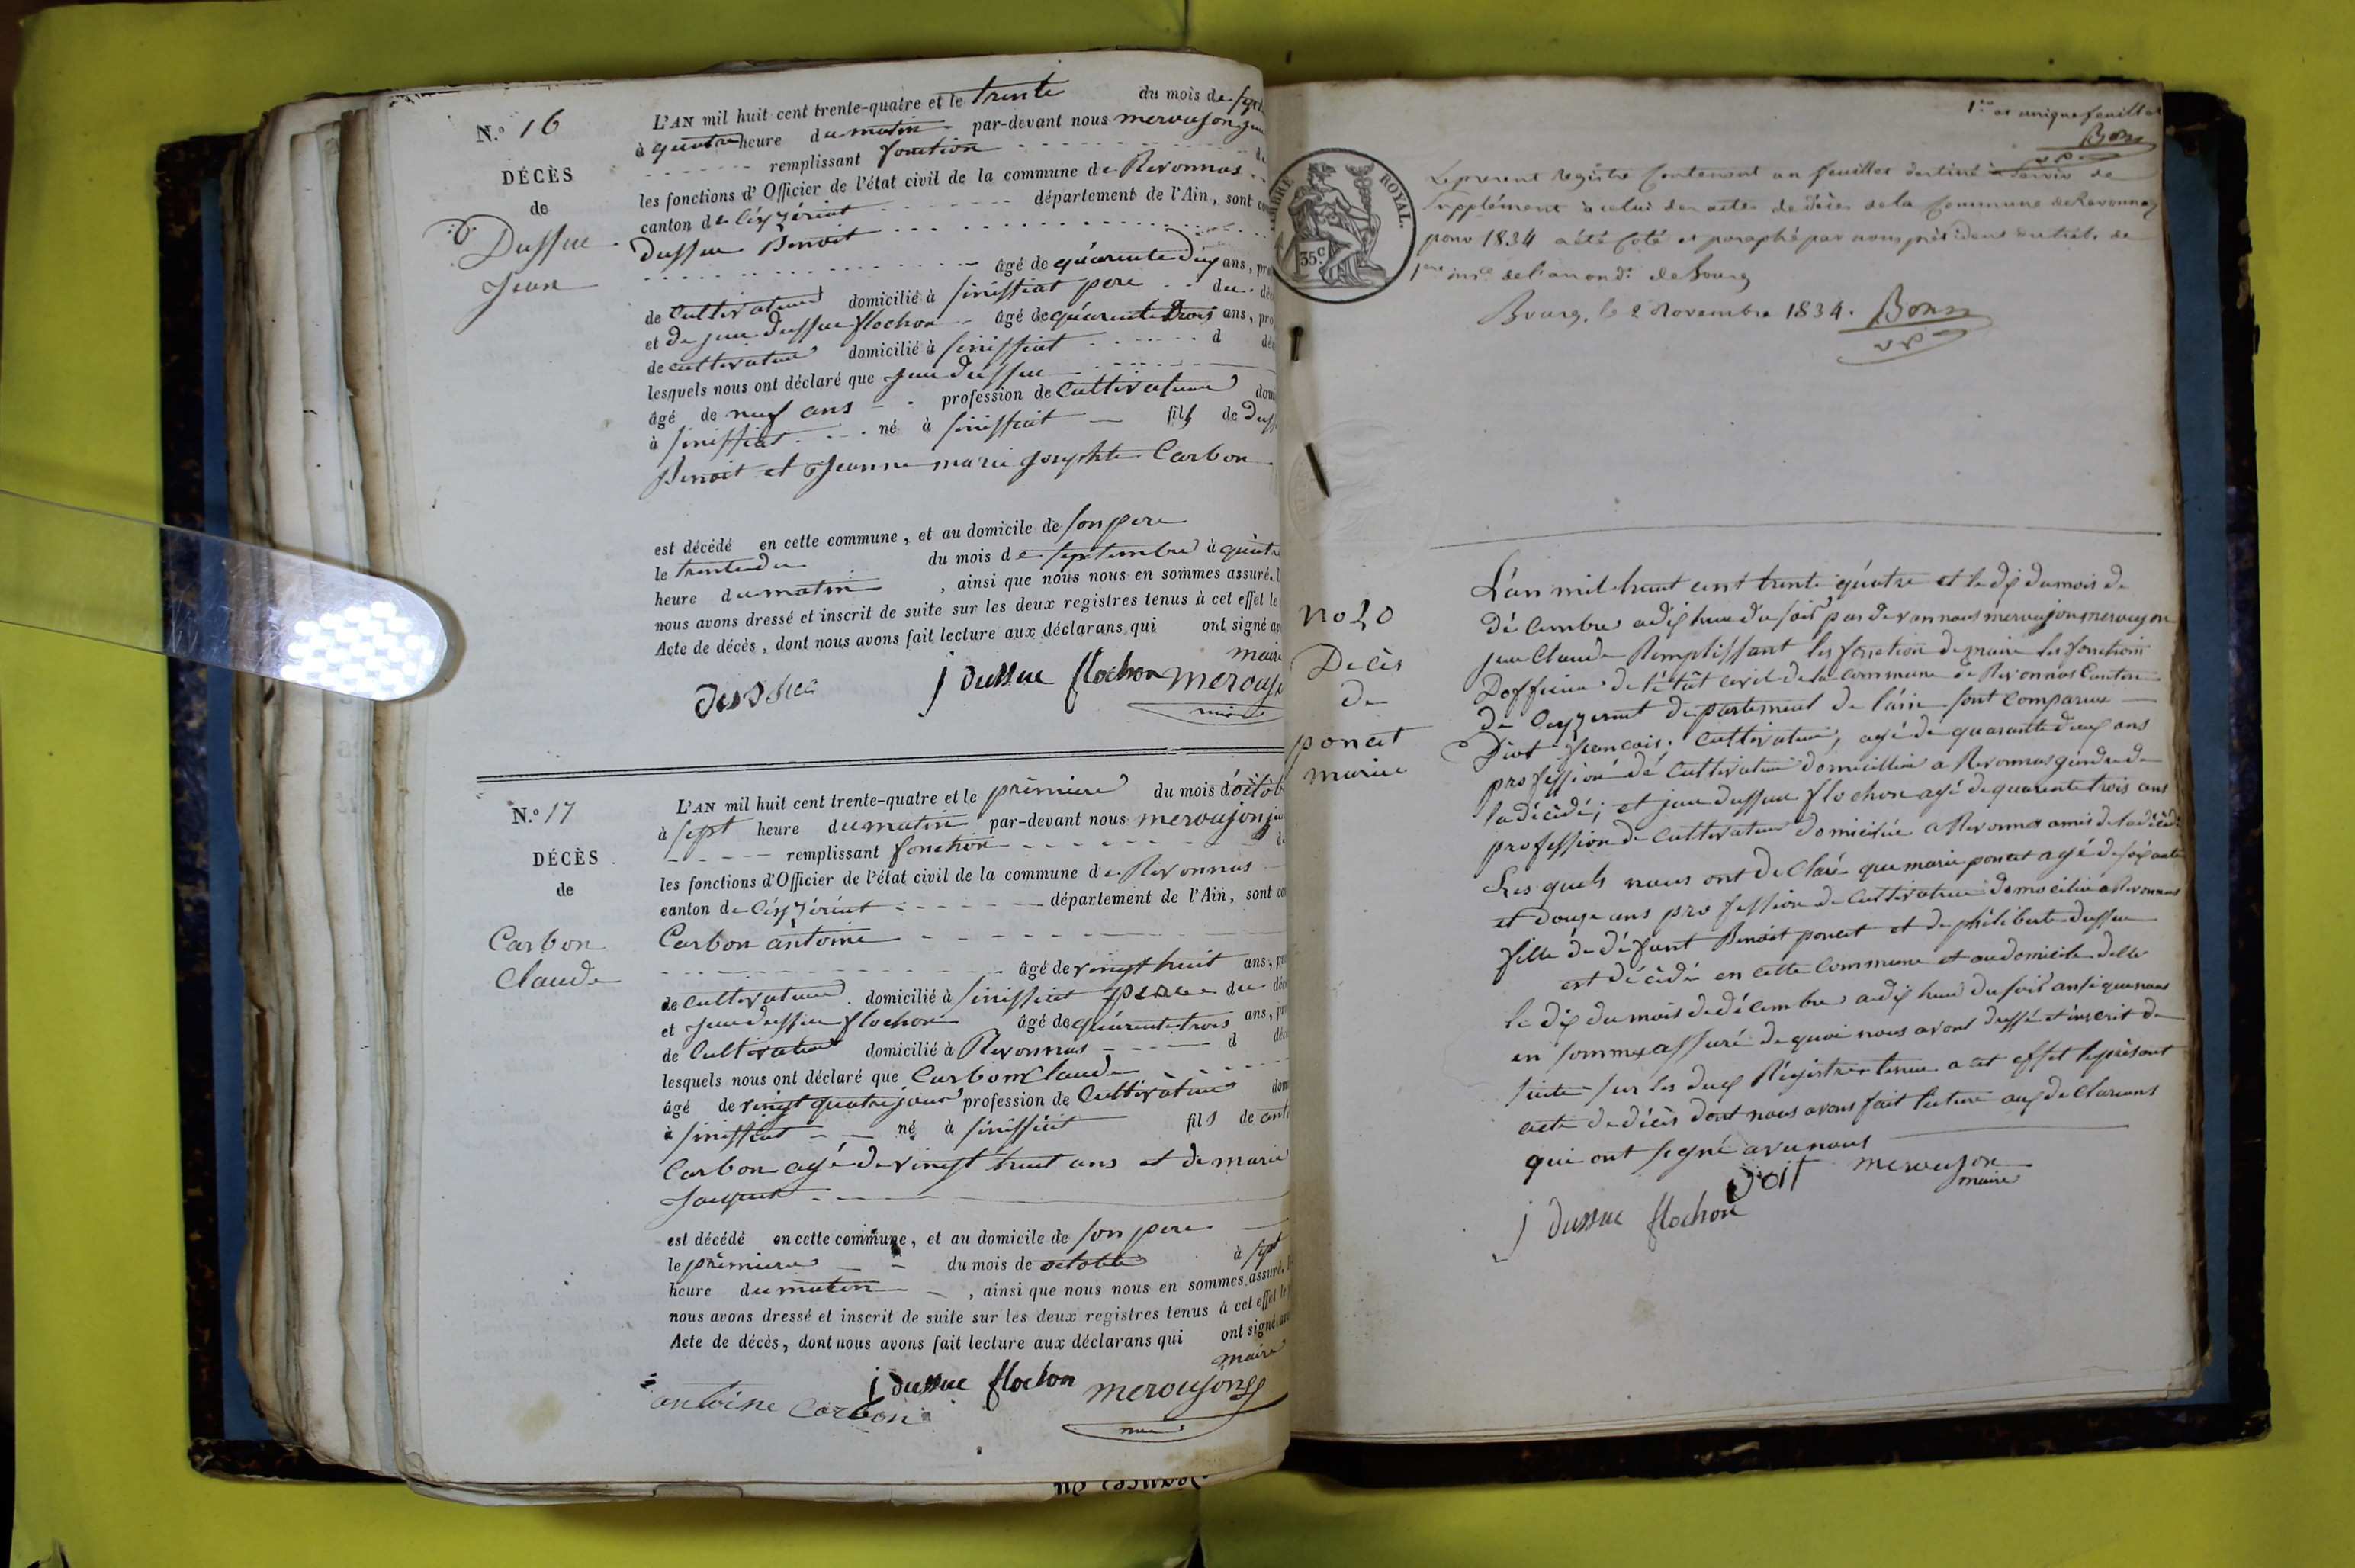 N.° 16
DÉCÈS
de
Dussuc
Jean
L'AN mil huit cent trente-quatre et le trente du mois de sept
à quatre heure du matin par-devant nous merousjon jean
remplissant fonction de
les fonctions d'Officier de l'état civil de la commune de Revonnas
canton de Ceyzériat département de l'Ain, sont
Dussuc Benoit
âgé de quarente deux ans,
de Cultivateur domicilié à Sénissiat pere du
et de jean dussuc flochon âgé de quarente trois ans,
de cultivateur domicilié à Sénissiat d
lesquels nous ont déclaré que jean dussuc
âgé de neuf ans profession de Cultivateur
à Sénissiat né à Sénissiat fils de Duss
Benoit et Jeanne marie josephte Carbon
est décédé en cette commune, et au domicile de son pere
le trente du du mois de septembre à quatre
heure du matin, ainsi que nous nous en sommes assuré
nous avons dressé et inscrit de suite sur les deux registres tenus à cet effet le
Acte de décès, dont nous avons fait lecture aux déclarans qui ont signé
maire
Dussuc j dussuc flochon
N.° 17
DÉCÈS
de
Carbon
Claude
L'AN mil huit cent trente-quatre et le premiere du mois d'octob
à sept heure du matin par-devant nous merousjon
remplissant fonction de
les fonctions d'Officier de l'état civil de la commune de Revonnas
canton de Ceyzériat département de l'Ain, sont
Carbon antoine
âgé de vingt huit ans,
de cultivateur domicilié à Sénissiat pere du
et jean dussuc flochon âgé de quarente trois ans,
de Cultivateur domicilié à Revonnas d
lesquels nous ont déclaré que Carbon Claude
âgé de vingt quatre jour profession de Cultivateur
à Sénissiat né à Sénissiat fils de anto
Carbon agé de vingt huit ans et de marie
est décédé en cette commune, et au domicile de son pere
le premiere du mois de octobre à sept
heure du matin, ainsi que nous nous en sommes assuré
nous avons dressé et inscrit de suite sur les deux registres tenus à cet effet le
Acte de décès, dont nous avons fait lecture aux déclarans qui ont signé
maire
antoine Carbon j dussuc flochon merousjon
1er et unique feuillet
Bon
TIMBRE ROYAL
35 c
Le present registre Contenant un feuillet destiné à servir de
supplément à celui des actes de décès de la Commune de Revonnas
pour 1834 a été coté et paraphé par nous président du trib. de
1ere ins.ce de l'arrond.t de Bourg
Bourg, le 2 Novembre 1834.
no 20
Décès
de
poncet
marie
L'an mil huit cent trente quatre et le dix du mois de
décembre a dix heure du soir par devan nous merousjon merousjon
jean Claude Remplissant les fonction de maire les fonctions
D'officier de l'état civil de la commune de Revonnas Canton
de Ceyzeriat departement de l'ain sont comparue
Diot francois, Cultivateur, agé de quarante deux ans
profession de cultivateur domicillié a Revonnas gendre de
la décédé; et jean dussuc flochon agé de quarente trois ans
profession de cultivateur domicilié a Revonnas amis de la décédé
Les quels nous ont declaré que marie poncet agé de soixante
et douze ans profession de Cultivateur domicilié a Revonnas
fille de défunt Benoit poncet et de philiberte dussuc
est décédé en cette Commune et au domicile delle
le dix du mois de décembre a dix heure du soir ansi que nous
en somme assuré de quoi nous avons dressé et inscrit de
suite sur les deux Régistre tenue a cet effet le présant
acte de décès dont nous avons fait lecture aux declarans
qui ont signé avec nous
Doit merousjon
maire
j dussuc flochon